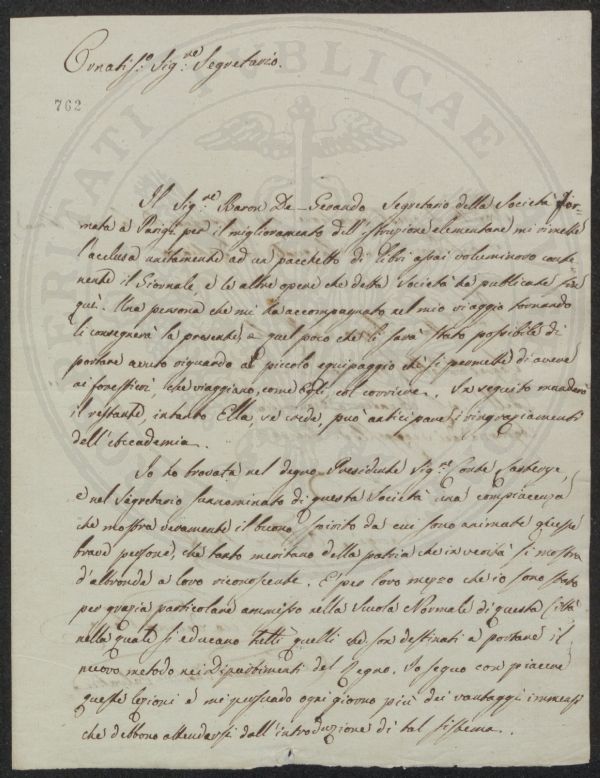 Ornatis.º Sig.re Segretario.
762
Il Sig.re Baron De-Gerando Segretario della Società for-
mata a Parigi per il miglioramento dell'istruzione elementare mi rimette
l'acclusa unitamente ad un pacchetto di libri assai voluminoso conte
nente il Giornale e le altre opere che detta Società ha publicate fin
quì. Una persona che mi ha accompagnato nel mio viaggio tornando
li consegnerà la presente, e quel poco che li sarà stato possibile di
portare avuto riguardo al piccolo equipaggio che si permette di avere
ai forestieri che viaggiano, come Egli, col corriere. In seguito manderò
il restante intanto Ella se crede, può anticipare i ringraziamenti
dell'Accademia.
Io ho trovata nel degno Presidente Sig.re Conte Lasteyrye,
e nel Segretario surnominato di questa Società una compiacenza
che mostra veramente il buono spirito da cui sono animate queste
brave persone, che tanto meritano della patria che in verità si mostra
d'altronde a loro riconoscente. E' per loro mezzo che io sono stato
per grazia particolare ammisso nella Scuola Normale di questa Città
nella quale si educano tutti quelli che son destinati a portare il
nuovo metodo nei Dipartimenti del Regno. Io seguo con piacere
queste lezioni e mi persuado ogni giorno più dei vantaggi immensi
che debbono attendersi dall'introduzione di tal sistema.